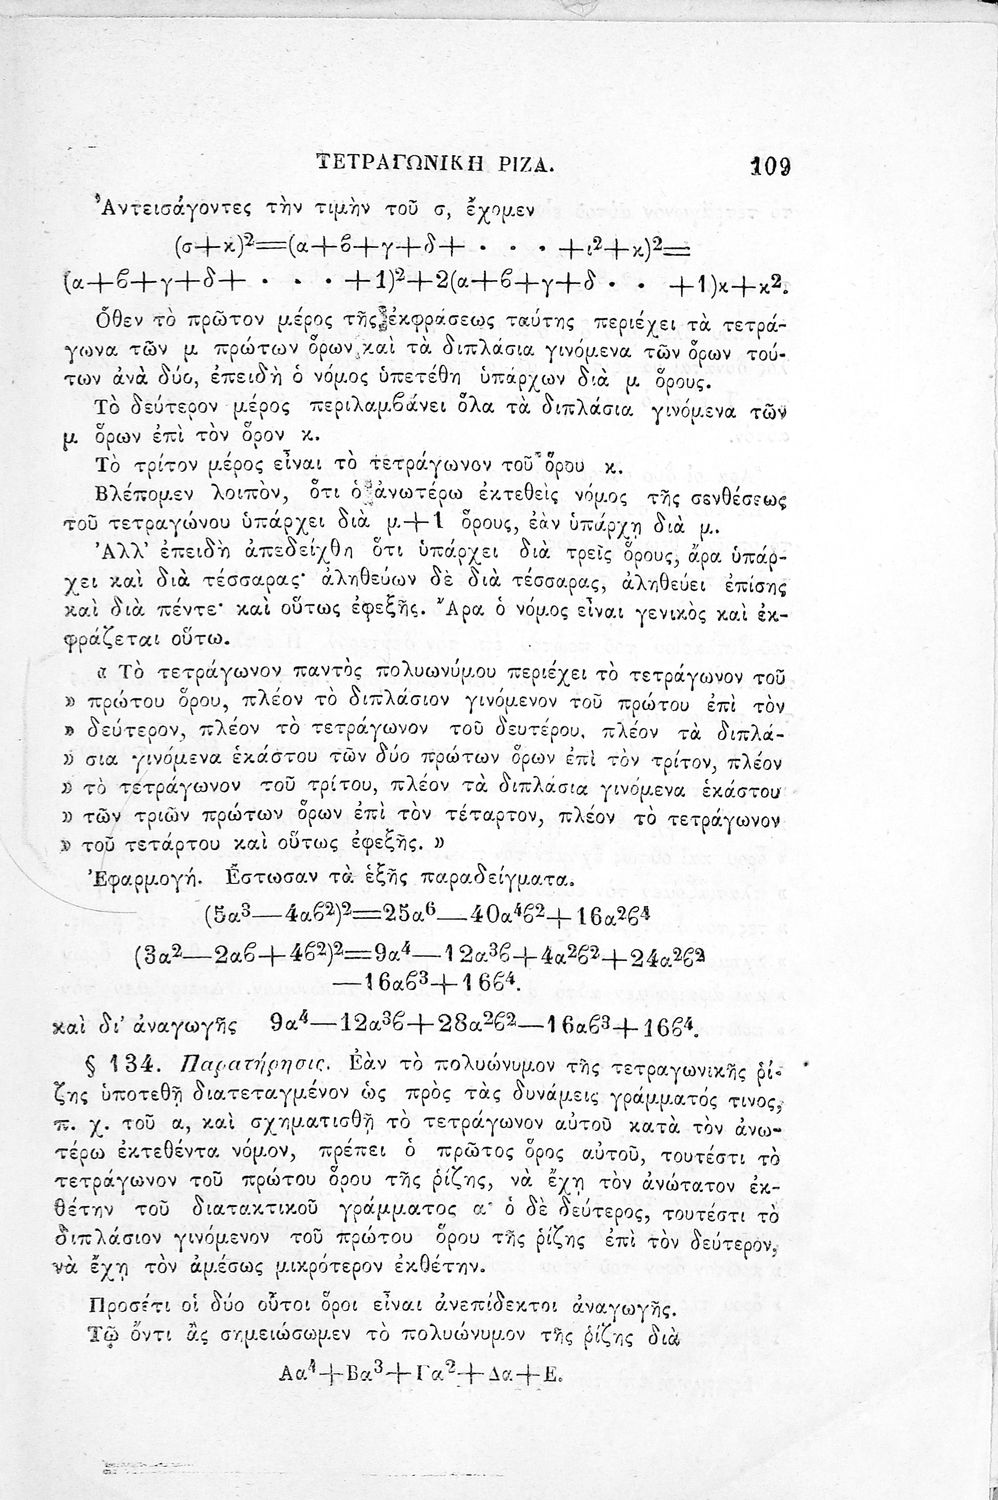 ΤΕΤΡΑΓΩΝΙΚΗ ΡΙΖΑ. 109
Ἀντεισάγοντες τὴν τιμὴν τοῦ σ, ἔχομεν
(σ+κ)²=(α+β+γ+δ+ . . . +ι²+κ)²=
(α+β+γ+δ+ . . . +1)²+2(α+β+γ+δ . . +1)κ+κ².
Ὅθεν τὸ πρῶτον μέρος τῆς ἐκφράσεως ταύτης περιέχει τὰ τετρά-
γωνα τῶν μ πρώτων ὅρων καὶ τὰ διπλάσια γινόμενα τῶν ὅρων τού-
των ἀνὰ δύο, ἐπειδὴ ὁ νόμος ὑπετέθη ὑπάρχων διὰ μ ὅρους.
Τὸ δεύτερον μέρος περιλαμβάνει ὅλα τὰ διπλάσια γινόμενα τῶν
μ ὅρων ἐπὶ τὸν ὅρον κ.
Τὸ τρίτον μέρος εἶναι τὸ τετράγωνον τοῦ ὅρου κ.
Βλέπομεν λοιπὸν, ὅτι ὁ ἀνωτέρω ἐκτεθεὶς νόμος τῆς συνθέσεως
τοῦ τετραγώνου ὑπάρχει διὰ μ+1 ὅρους, ἐὰν ὑπάρχῃ διὰ μ.
Ἀλλ' ἐπειδὴ ἀπεδείχθη ὅτι ὑπάρχει διὰ τρεῖς ὅρους, ἄρα ὑπάρ-
χει καὶ διὰ τέσσαρας· ἀληθεύων δὲ διὰ τέσσαρας, ἀληθεύει ἐπίσης
καὶ διὰ πέντε· καὶ οὕτως ἐφεξῆς. Ἄρα ὁ νόμος εἶναι γενικὸς καὶ ἐκ-
φράζεται οὕτω.
« Τὸ τετράγωνον παντὸς πολυωνύμου περιέχει τὸ τετράγωνον τοῦ
» πρώτου ὅρου, πλέον τὸ διπλάσιον γινόμενον τοῦ πρώτου ἐπὶ τὸν
» δεύτερον, πλέον τὸ τετράγωνον τοῦ δευτέρου, πλέον τὰ διπλά-
» σια γινόμενα ἑκάστου τῶν δύο πρώτων ὅρων ἐπὶ τὸν τρίτον, πλέον
» τὸ τετράγωνον τοῦ τρίτου, πλέον τὰ διπλάσια γινόμενα ἑκάστου
» τῶν τριῶν πρώτων ὅρων ἐπὶ τὸν τέταρτον, πλέον τὸ τετράγωνον
» τοῦ τετάρτου καὶ οὕτως ἐφεξῆς. »
Ἐφαρμογή. Ἔστωσαν τὰ ἑξῆς παραδείγματα.
(5α³—4αβ²)²=25α⁶—40α⁴β²+16α²β⁴
(3α²—2αβ+4β²)²=9α⁴—12α³β+4α²β²+24α²β²
—16αβ³+16β⁴.
καὶ δι' ἀναγωγῆς 9α⁴—12α³β+28α²β²—16αβ³+16β⁴.
§ 134. Παρατήρησις. Ἐὰν τὸ πολυώνυμον τῆς τετραγωνικῆς ῥί-
ζης ὑποτεθῇ διατεταγμένον ὡς πρὸς τὰς δυνάμεις γράμματός τινος,
π. χ. τοῦ α, καὶ σχηματισθῇ τὸ τετράγωνον αὐτοῦ κατὰ τὸν ἀνω-
τέρω ἐκτεθέντα νόμον, πρέπει ὁ πρῶτος ὅρος αὐτοῦ, τουτέστι τὸ
τετράγωνον τοῦ πρώτου ὅρου τῆς ῥίζης, νὰ ἔχῃ τὸν ἀνώτατον ἐκ-
θέτην τοῦ διατακτικοῦ γράμματος α· ὁ δὲ δεύτερος, τουτέστι τὸ
διπλάσιον γινόμενον τοῦ πρώτου ὅρου τῆς ῥίζης ἐπὶ τὸν δεύτερον,
νὰ ἔχῃ τὸν ἀμέσως μικρότερον ἐκθέτην.
Προσέτι οἱ δύο οὗτοι ὅροι εἶναι ἀνεπίδεκτοι ἀναγωγῆς.
Τῷ ὄντι ἂς σημειώσωμεν τὸ πολυώνυμον τῆς ῥίζης διὰ
Αα⁴+Βα³+Γα²+Δα+Ε.